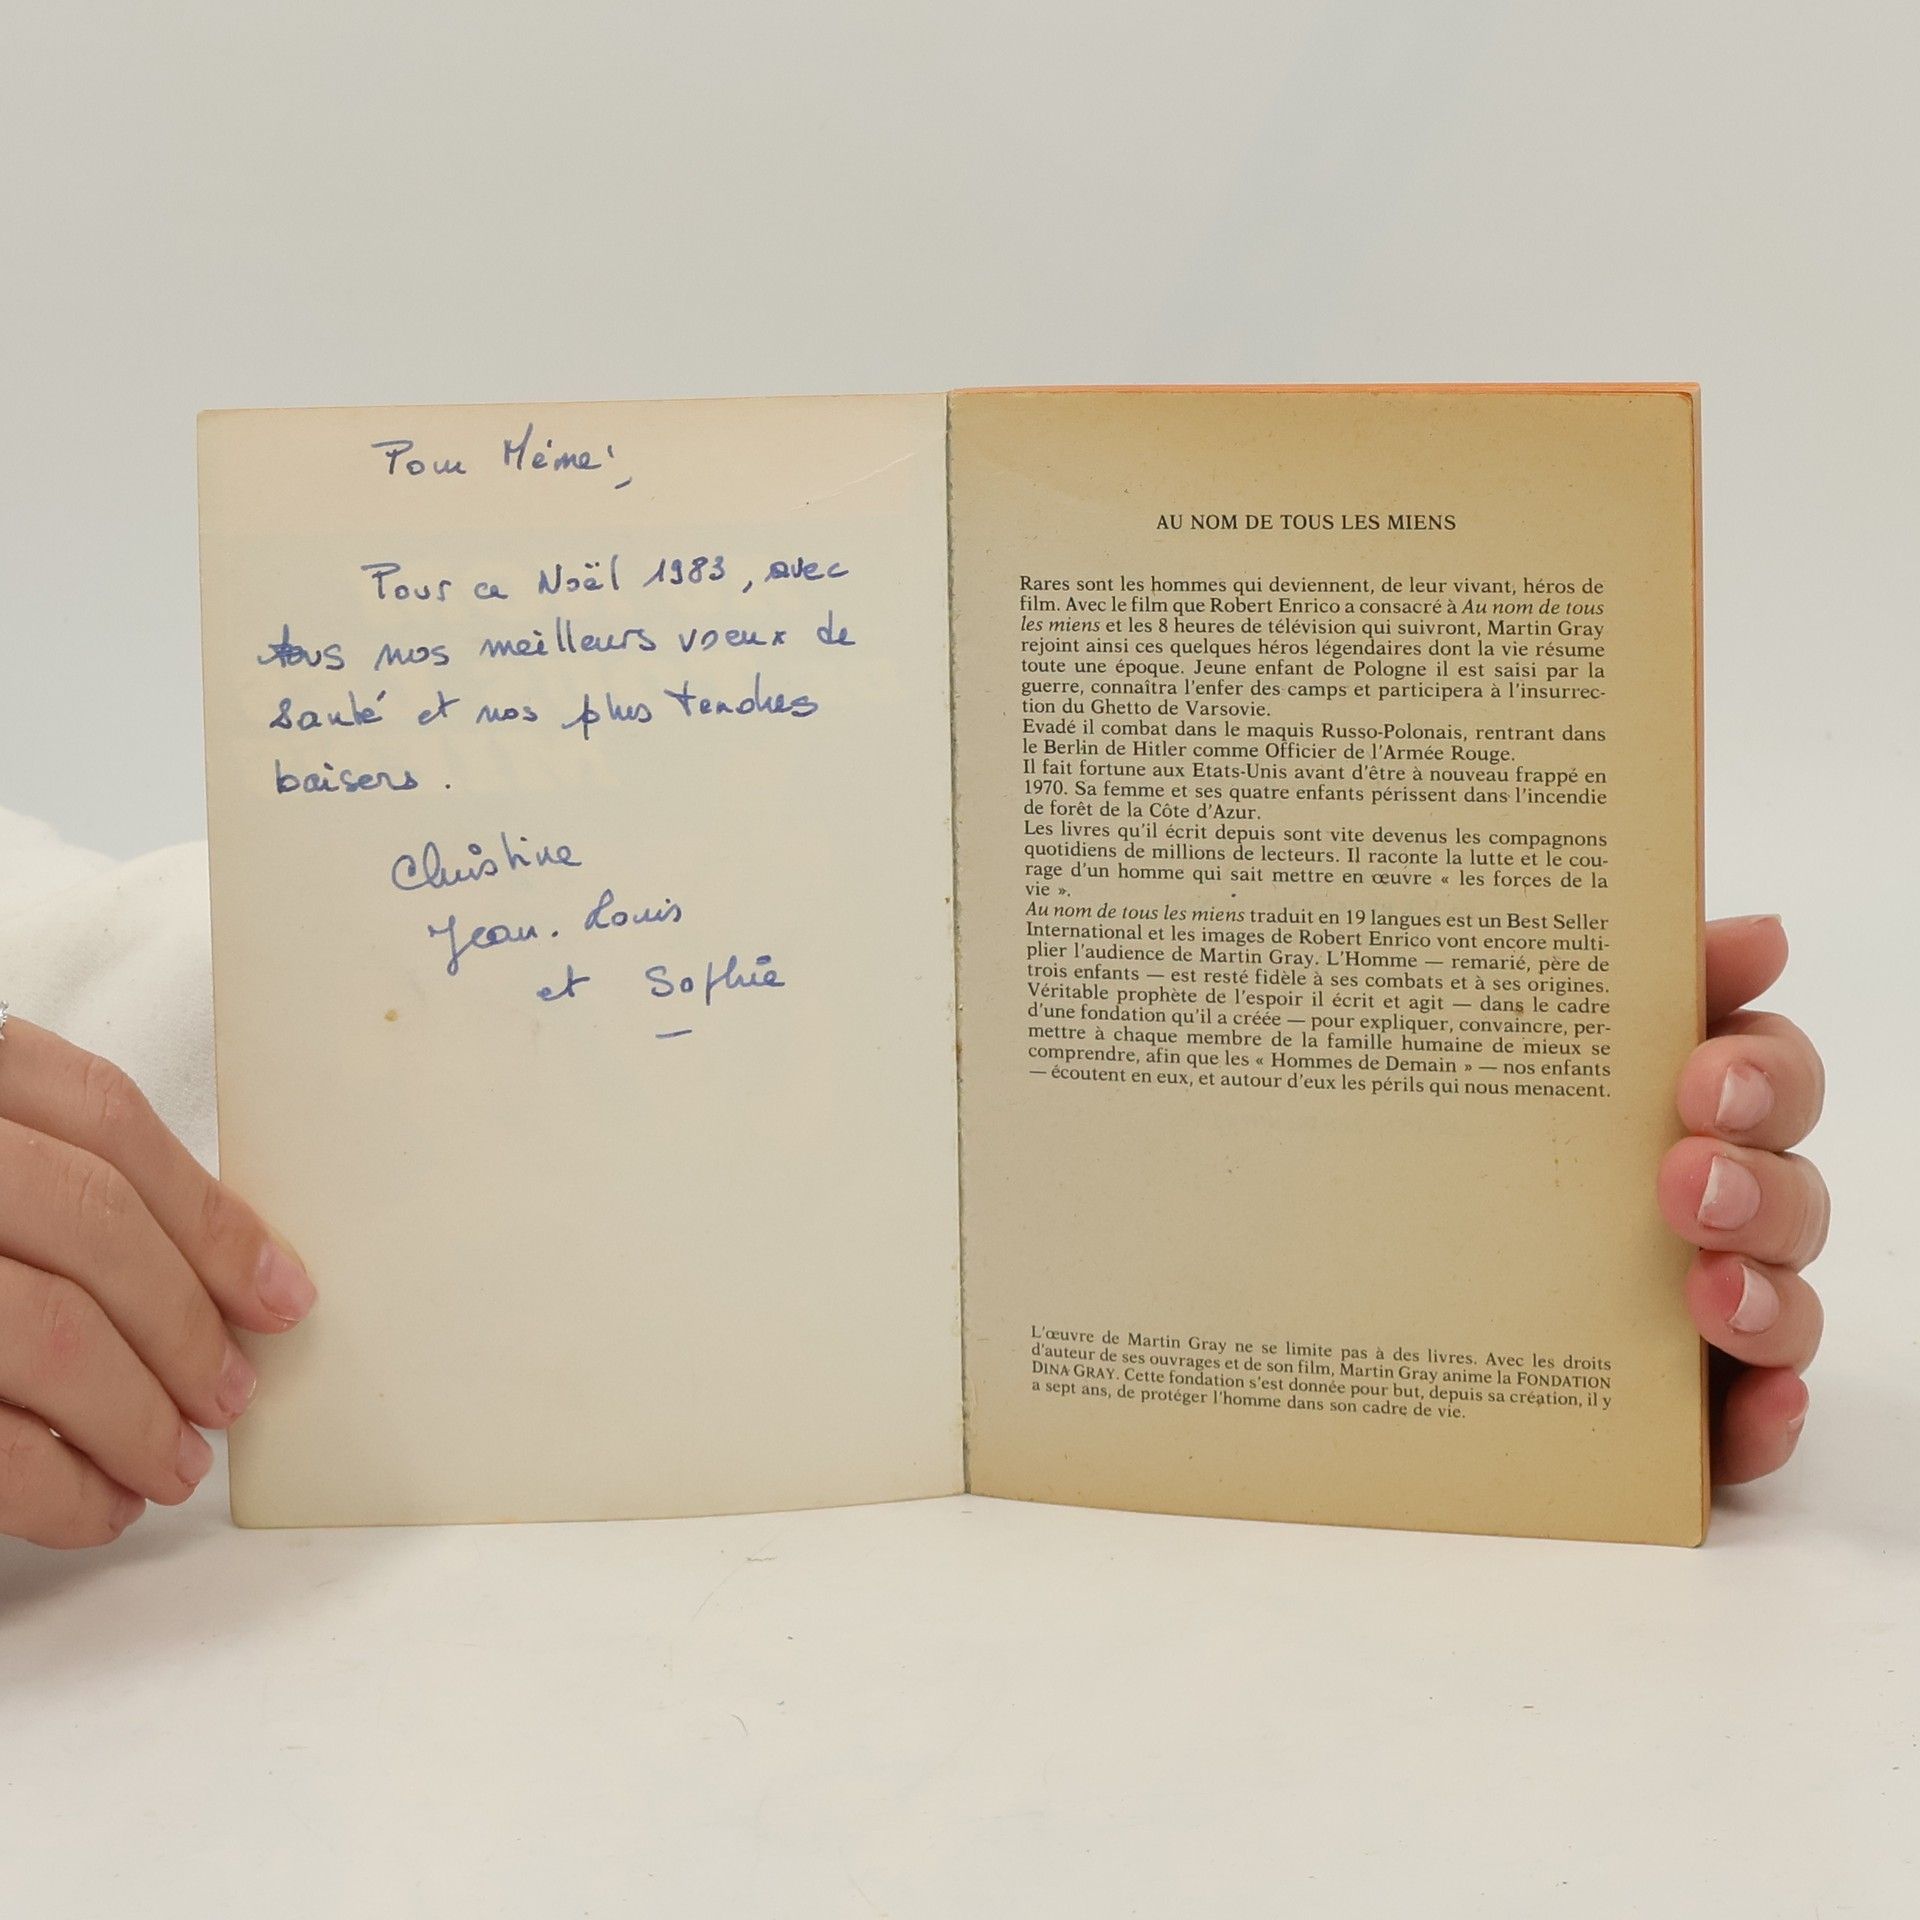 Pour Mémé,
Pour ce Noël 1983, avec
tous nos meilleurs voeux de
santé et nos plus tendres
baisers.
Christine
Jean-Louis
et Sophie
AU NOM DE TOUS LES MIENS
Rares sont les hommes qui deviennent, de leur vivant, héros de
film. Avec le film que Robert Enrico a consacré à Au nom de tous
les miens et les 8 heures de télévision qui suivront, Martin Gray
rejoint ainsi ces quelques héros légendaires dont la vie résume
toute une époque. Jeune enfant de Pologne il est saisi par la
guerre, connaîtra l'enfer des camps et participera à l'insurrec-
tion du Ghetto de Varsovie.
Evadé il combat dans le maquis Russo-Polonais, rentrant dans
le Berlin de Hitler comme Officier de l'Armée Rouge.
Il fait fortune aux Etats-Unis avant d'être à nouveau frappé en
1970. Sa femme et ses quatre enfants périssent dans l'incendie
de forêt de la Côte d'Azur.
Les livres qu'il écrit depuis sont vite devenus les compagnons
quotidiens de millions de lecteurs. Il raconte la lutte et le cou-
rage d'un homme qui sait mettre en œuvre « les forces de la
vie ».
Au nom de tous les miens traduit en 19 langues est un Best Seller
International et les images de Robert Enrico vont encore multi-
plier l'audience de Martin Gray. L'Homme — remarié, père de
trois enfants — est resté fidèle à ses combats et à ses origines.
Véritable prophète de l'espoir il écrit et agit — dans le cadre
d'une fondation qu'il a créée — pour expliquer, convaincre, per-
mettre à chaque membre de la famille humaine de mieux se
comprendre, afin que les « Hommes de Demain » — nos enfants
— écoutent en eux, et autour d'eux les périls qui nous menacent.
L'œuvre de Martin Gray ne se limite pas à des livres. Avec les droits
d'auteur de ses ouvrages et de son film, Martin Gray anime la FONDATION
DINA GRAY. Cette fondation s'est donnée pour but, depuis sa création, il y
a sept ans, de protéger l'homme dans son cadre de vie.